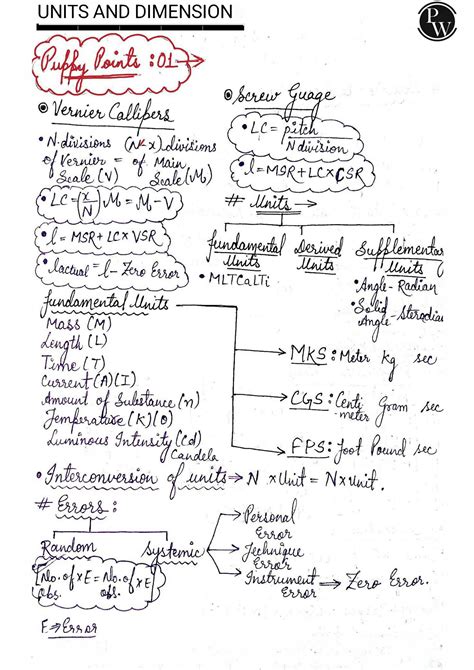 UNITS AND DIMENSION
PW
Puppy Points : 01 →
Vernier Callipers
• N. divisions (N-x) divisions
of Vernier = of Main
Scale (V) Scale (M)
• LC = (x/N) M = M - V
• l = MSR + LC x VSR
• lactual = l - Zero Error
Screw Guage
• LC = pitch
N division
• l = MSR + LC x CSR
# Units →
fundamental Units
• MLTCaLTi
Derived Units
Supplementary Units
• Angle - Radian
• Solid Angle - Steradian
fundamental Units
Mass (M)
Length (L)
Time (T)
Current (A) (I)
Amount of Substance (n)
Temperature (K) (θ)
Luminous Intensity (Cd)
Candela
→ MKS : Meter Kg sec
→ CGS : Centi meter Gram sec
→ FPS : Foot Pound sec
• Interconversion of units ⇒ N x Unit = N x Unit.
# Errors :
Random
[No. of x E = No. of x E]
obs. obs.
E ⇒ Error
Systemic
→ Personal Error
→ Technique Error
→ Instrument Error ⇒ Zero Error.